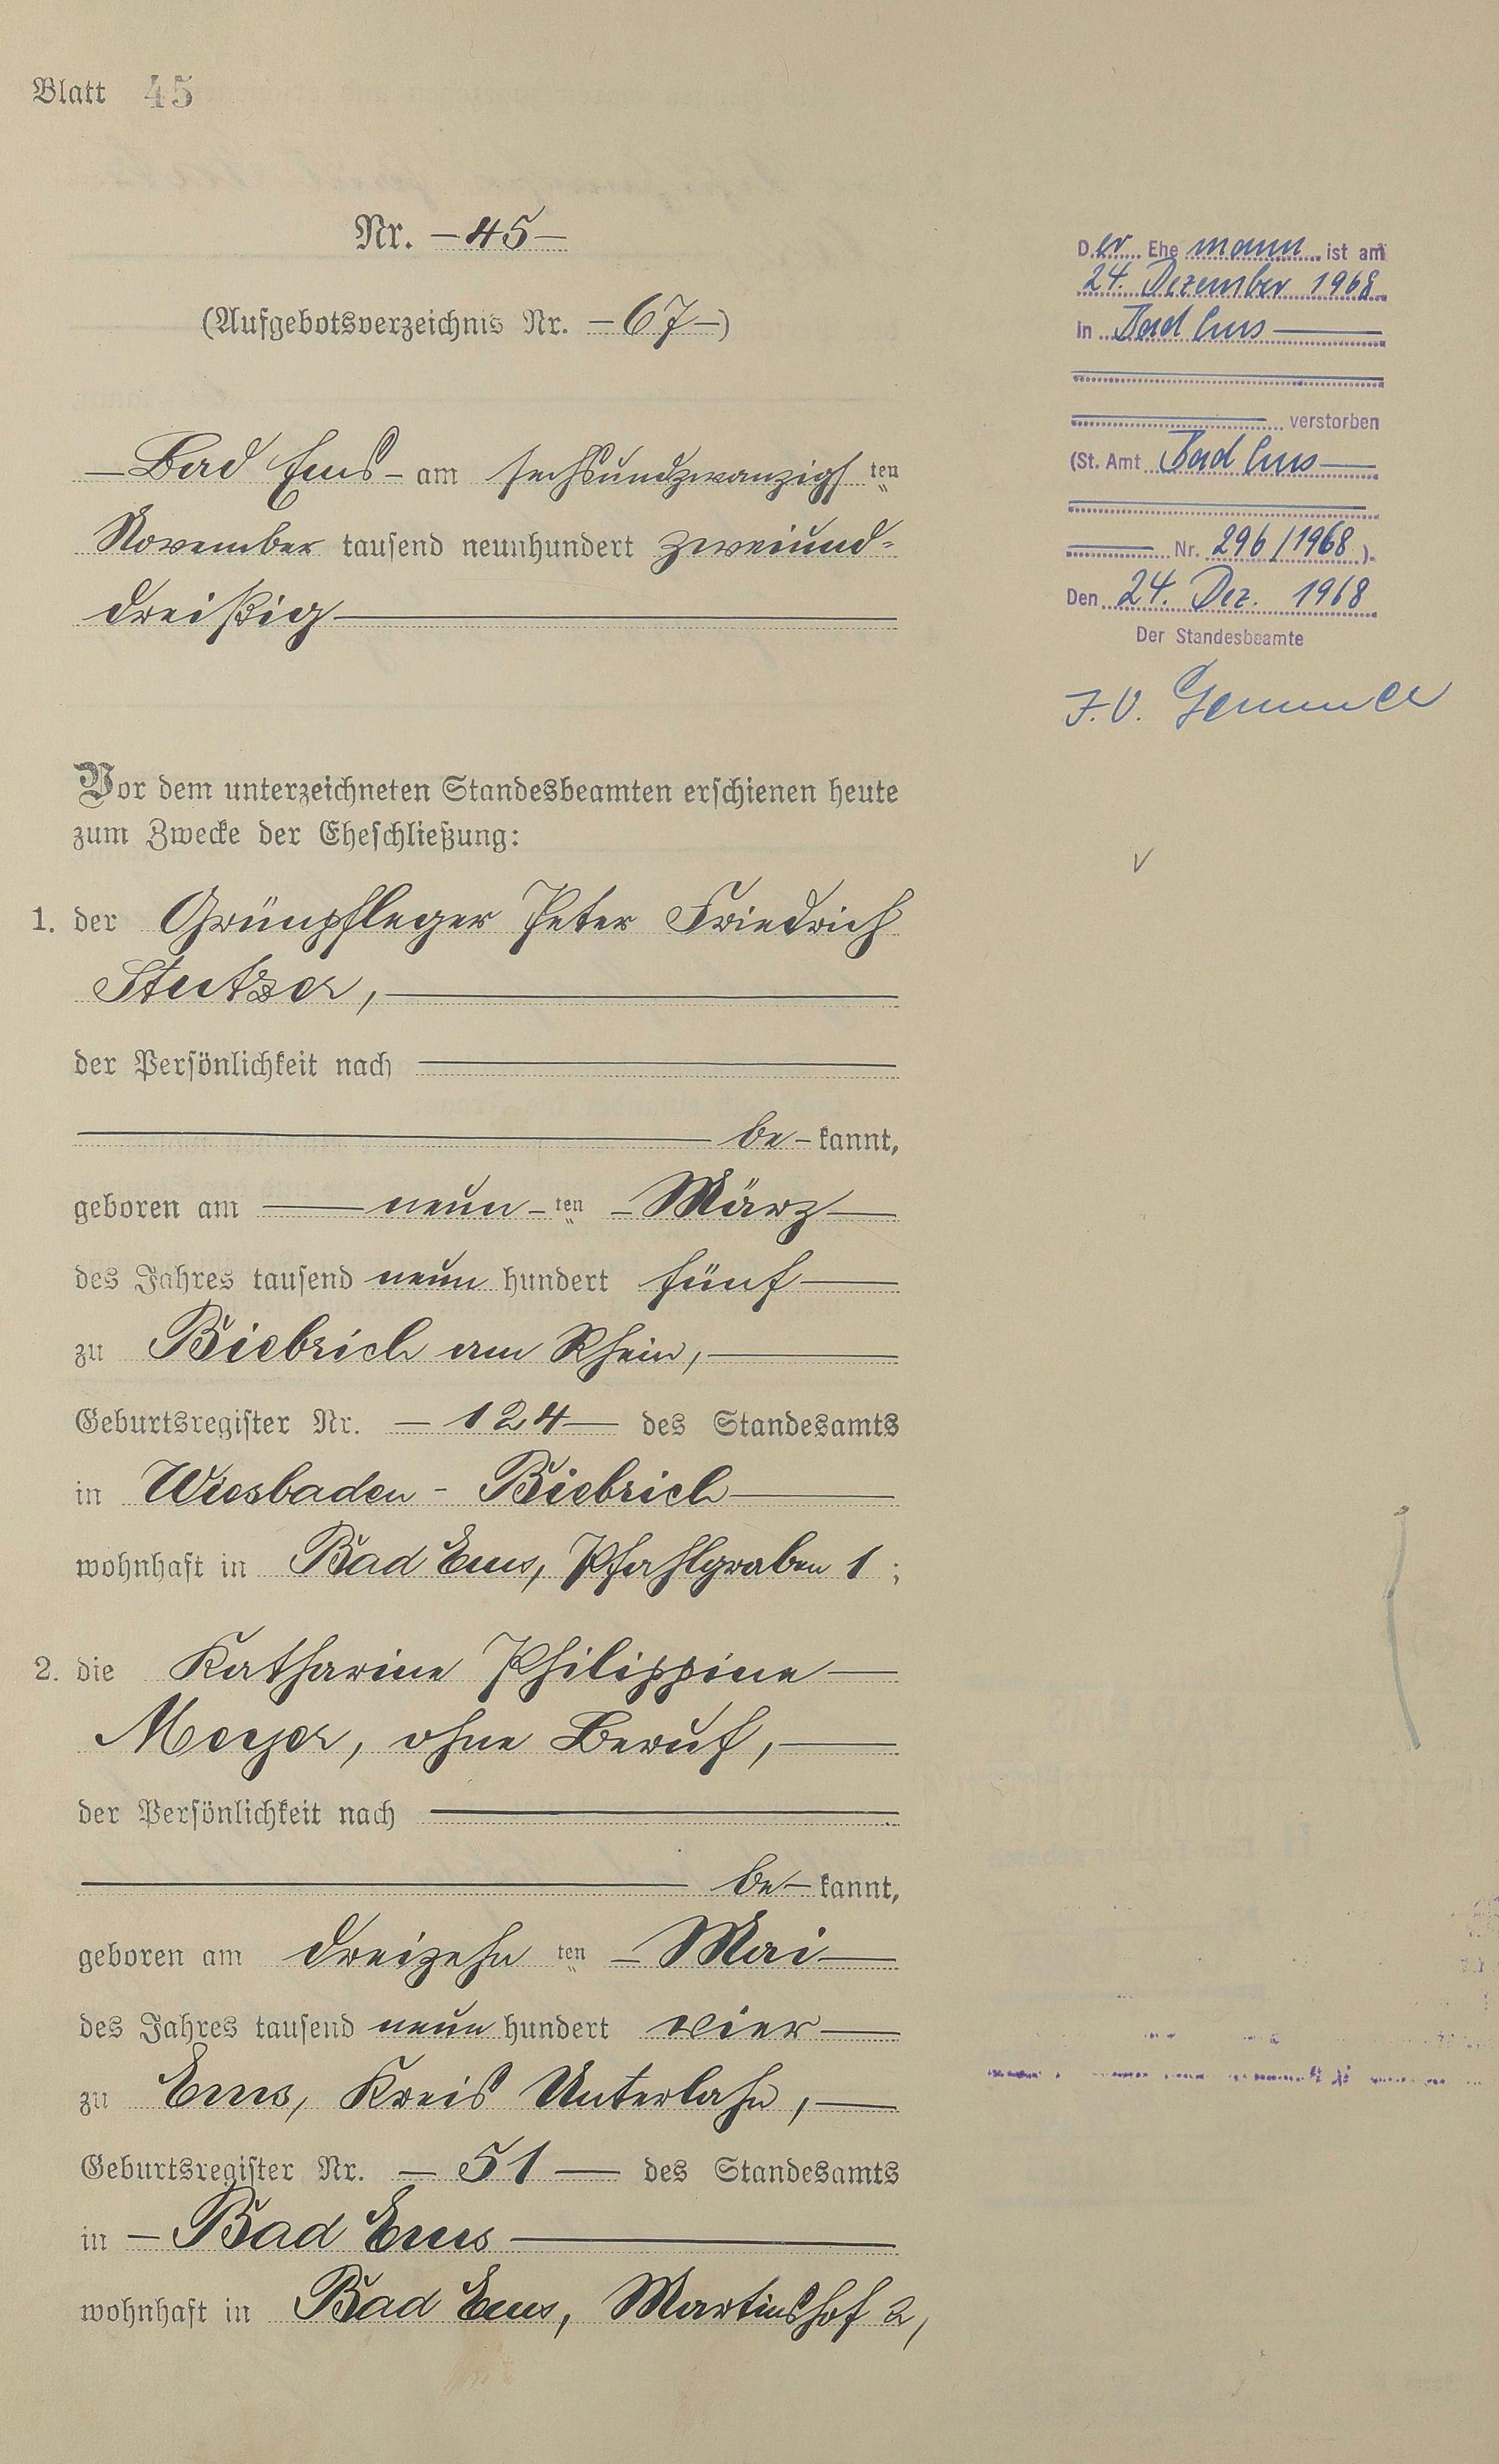 Blatt 45
Nr. — 45 —
(Aufgebotsverzeichnis Nr. — 67 —)
— Bad Ems — am sechsundzwanzigsten
November tausend neunhundert zweiund-
dreißig —
Vor dem unterzeichneten Standesbeamten erschienen heute
zum Zwecke der Eheschließung:
1. der Grünpfleger Peter Friedrich
Stutzer, —
der Persönlichkeit nach —
— be — kannt,
geboren am — neun — ten — März —
des Jahres tausend neun hundert fünf —
zu Biebrich am Rhein, —
Geburtsregister Nr. — 124 — des Standesamts
in Wiesbaden - Biebrich —
wohnhaft in Bad Ems, Pfahlgraben 1 ;
2. die Katharine Philippine —
Meyer, ohne Beruf, —
der Persönlichkeit nach —
— be — kannt,
geboren am dreizehn ten — Mai —
des Jahres tausend neun hundert vier —
zu Ems, Kreis Unterlahn, —
Geburtsregister Nr. — 51 — des Standesamts
in — Bad Ems —
wohnhaft in Bad Ems, Martinshof 2,
Der Ehemann ist am
24. Dezember 1968
in Bad Ems —
— verstorben
(St. Amt Bad Ems —
— Nr. 296/1968).
Den 24. Dez. 1968
Der Standesbeamte
I.V.